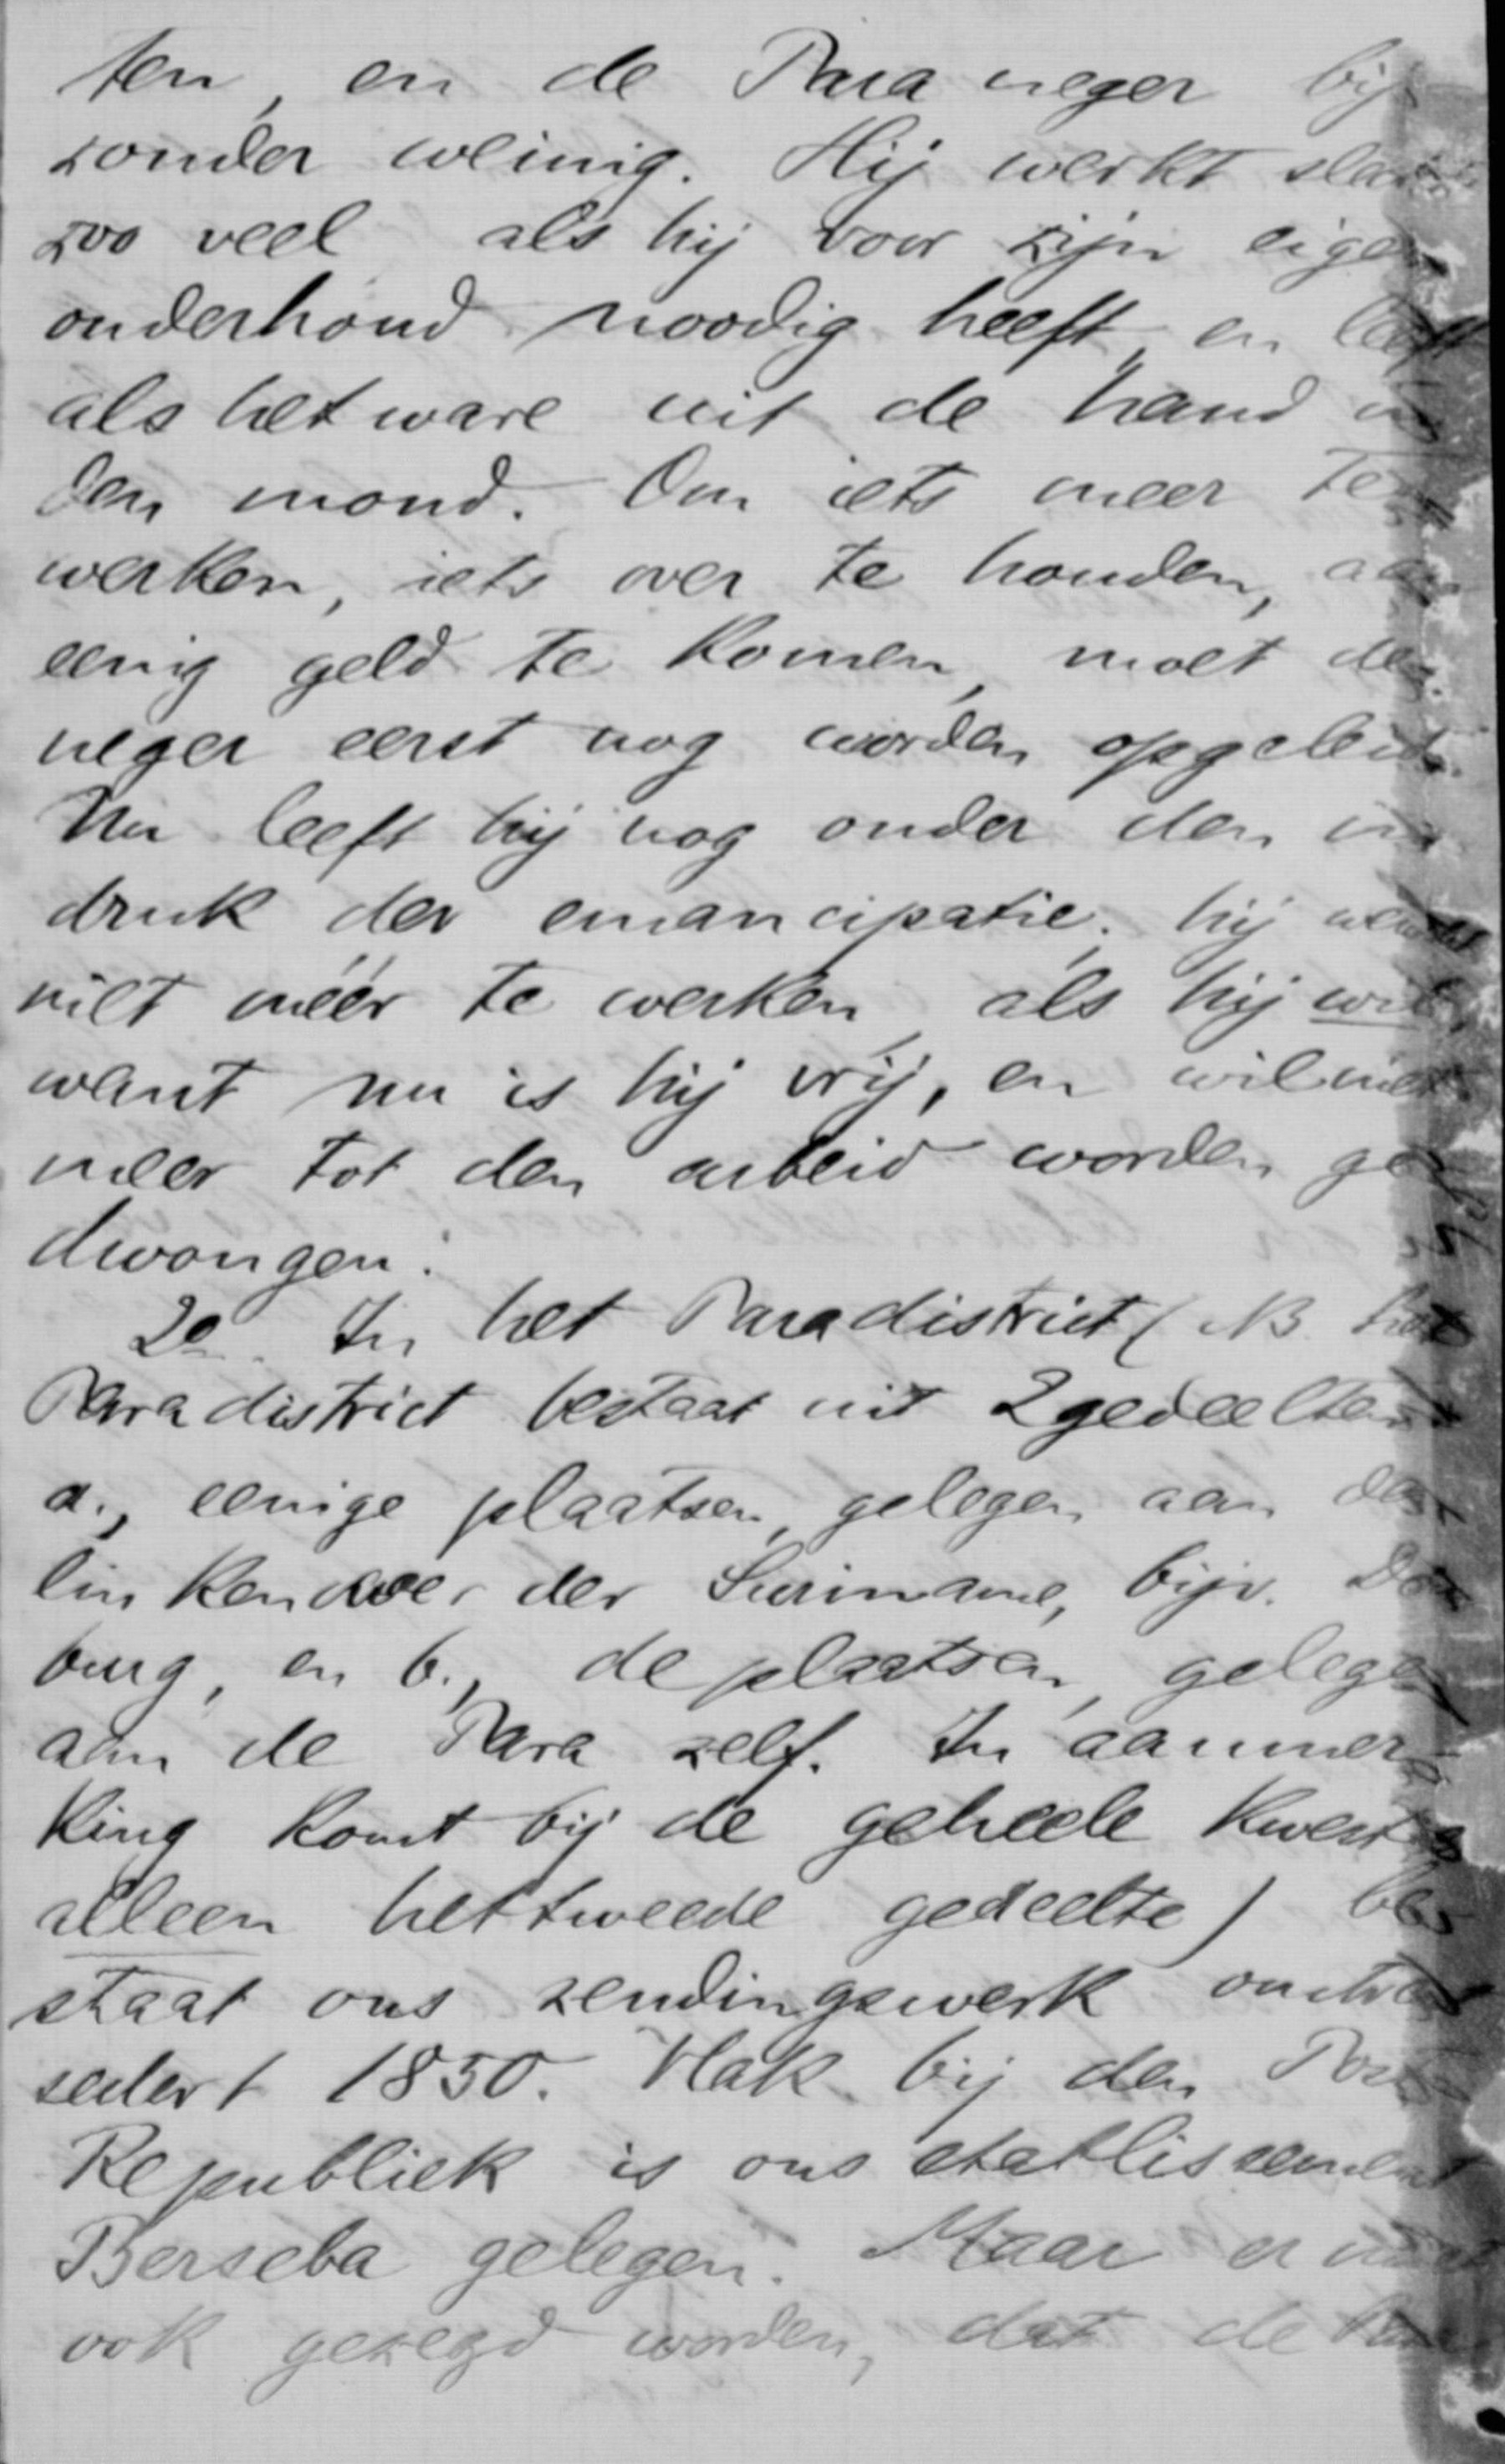 ten, en de Para neger bij-
zonder weinig. Hij werkt slechts
zoo veel als hij voor zijn eigen
onderhoud noodig heeft, en leeft
als het ware uit de hand in
den mond. Om iets meer te
werken, iets over te houden, aan
eenig geld te komen, moet de
neger eerst nog worden opgeleid.
Nu leeft hij nog onder den in
druk der emancipatie; hij
niet méér te werken, als hij wil,
want nu is hij vrij, en wil niet
meer tot den arbeid worden ge
dwongen.
2e. In het Paradistrict (NB. het
Paradistrict bestaat uit 2 gedeelten
a., eenige plaatsen, gelegen aan den
linkeroever der Suriname, bijv.
burg, en b., de plaatsen, gelegen
aan de Para zelf. In aanmer-
king komt bij de geheele kwestie
alleen het tweede gedeelte) be-
staat ons zendingswerk
sedert 1850. Vlak bij den Post
Republiek is ons etablissement
Berseba gelegen. Maar er moet
ook gezegd worden, dat de